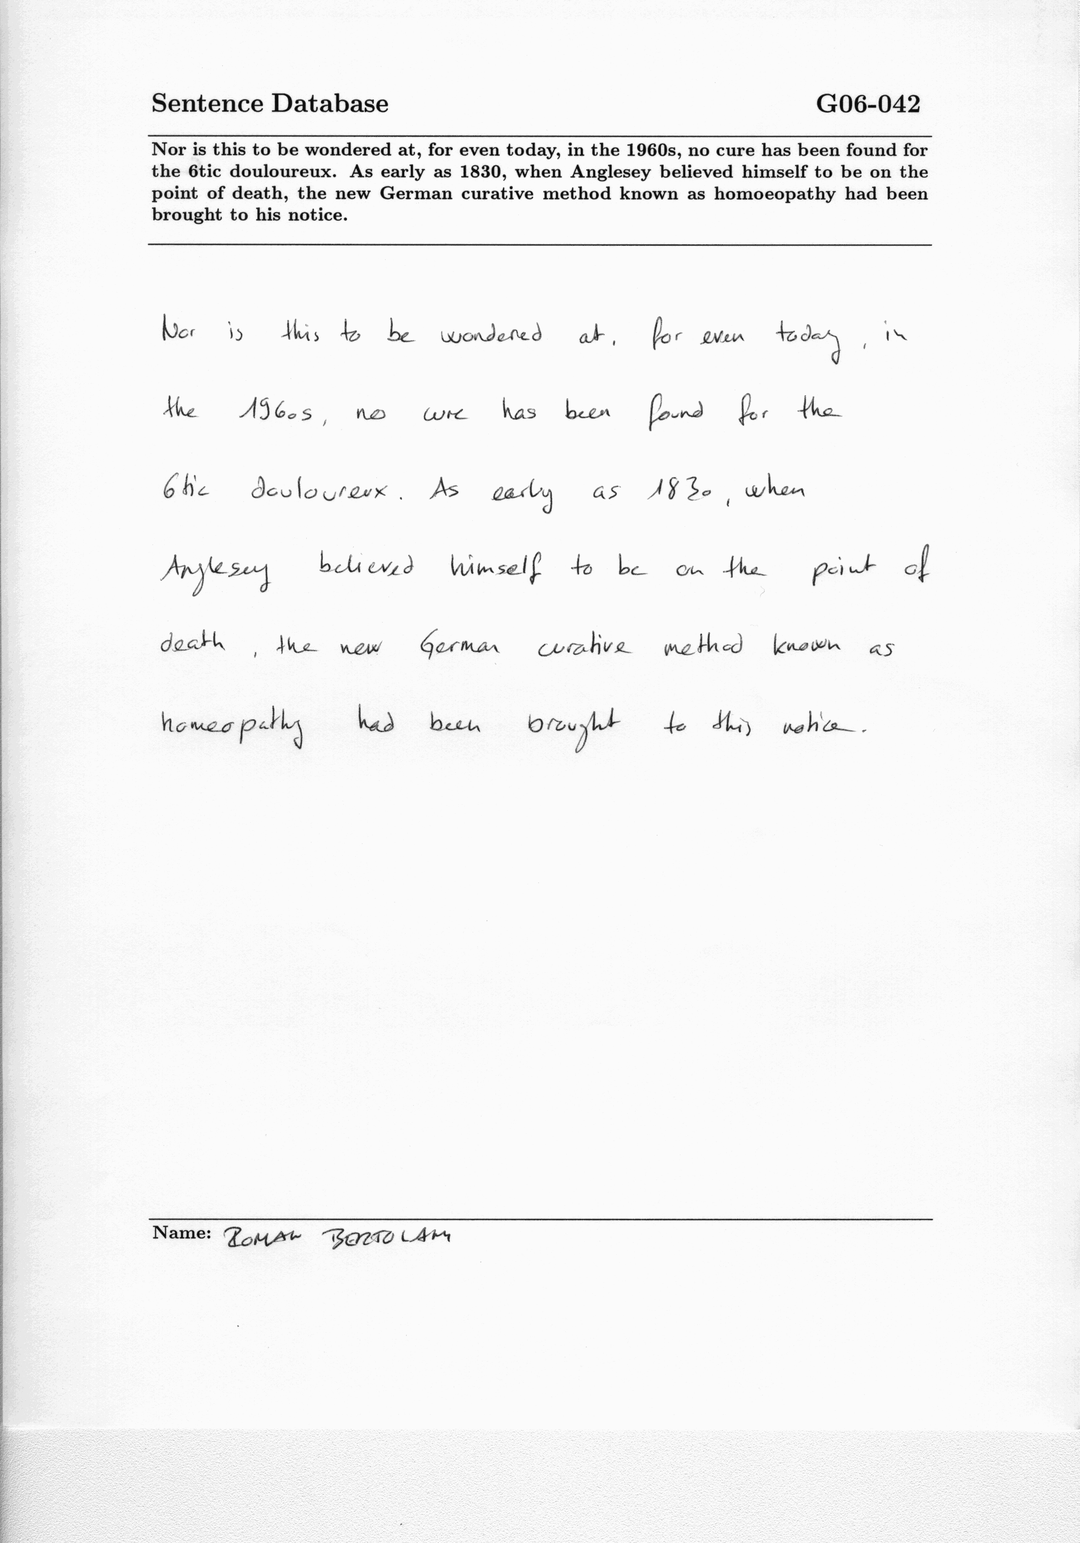 Sentence Database G06-042
Nor is this to be wondered at, for even today, in the 1960s, no cure has been found for
the 6tic douloureux. As early as 1830, when Anglesey believed himself to be on the
point of death, the new German curative method known as homoeopathy had been
brought to his notice.
Nor is this to be wondered at, for even today, in
the 1960s, no cure has been found for the
6tic douloureux. As early as 1830, when
Anglesey believed himself to be on the point of
death, the new German curative method known as
homeopathy had been brought to this notice.
Name: ROMAN BERTOLAMI